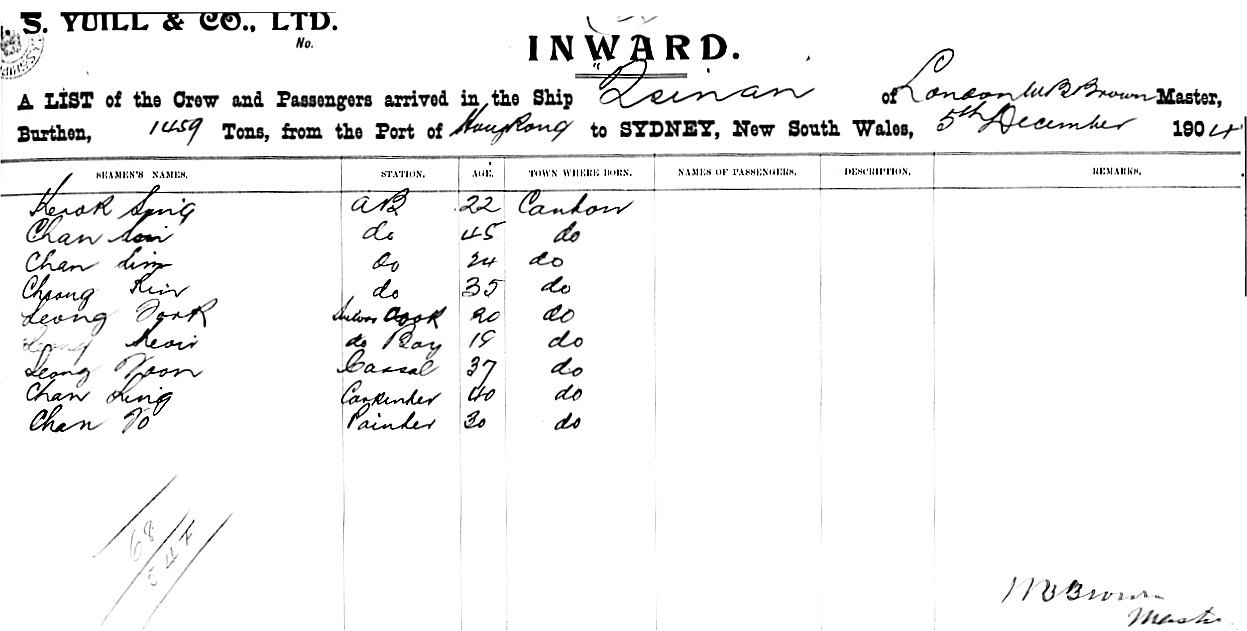 S. YUILL & CO., LTD.
No.
INWARD.
A LIST of the Crew and Passengers arrived in the Ship Tsinan of London W B Brown Master,
Burthen, 1459 Tons, from the Port of HongKong to SYDNEY, New South Wales, 5th December 1904
SEAMEN'S NAMES. STATION. AGE. TOWN WHERE BORN. NAMES OF PASSENGERS. DESCRIPTION. REMARKS.
Sing AB 22 Canton
Chan do 45 do
Chan Sim do 24 do
Cheong Kin do 35 do
Leong Cook 20 do
do Boy 19 do
Leong Yoon Cassal 37 do
Chan Ling Carpenter 40 do
Chan Yo Painter 30 do
68
54 F
W B Brown
Master